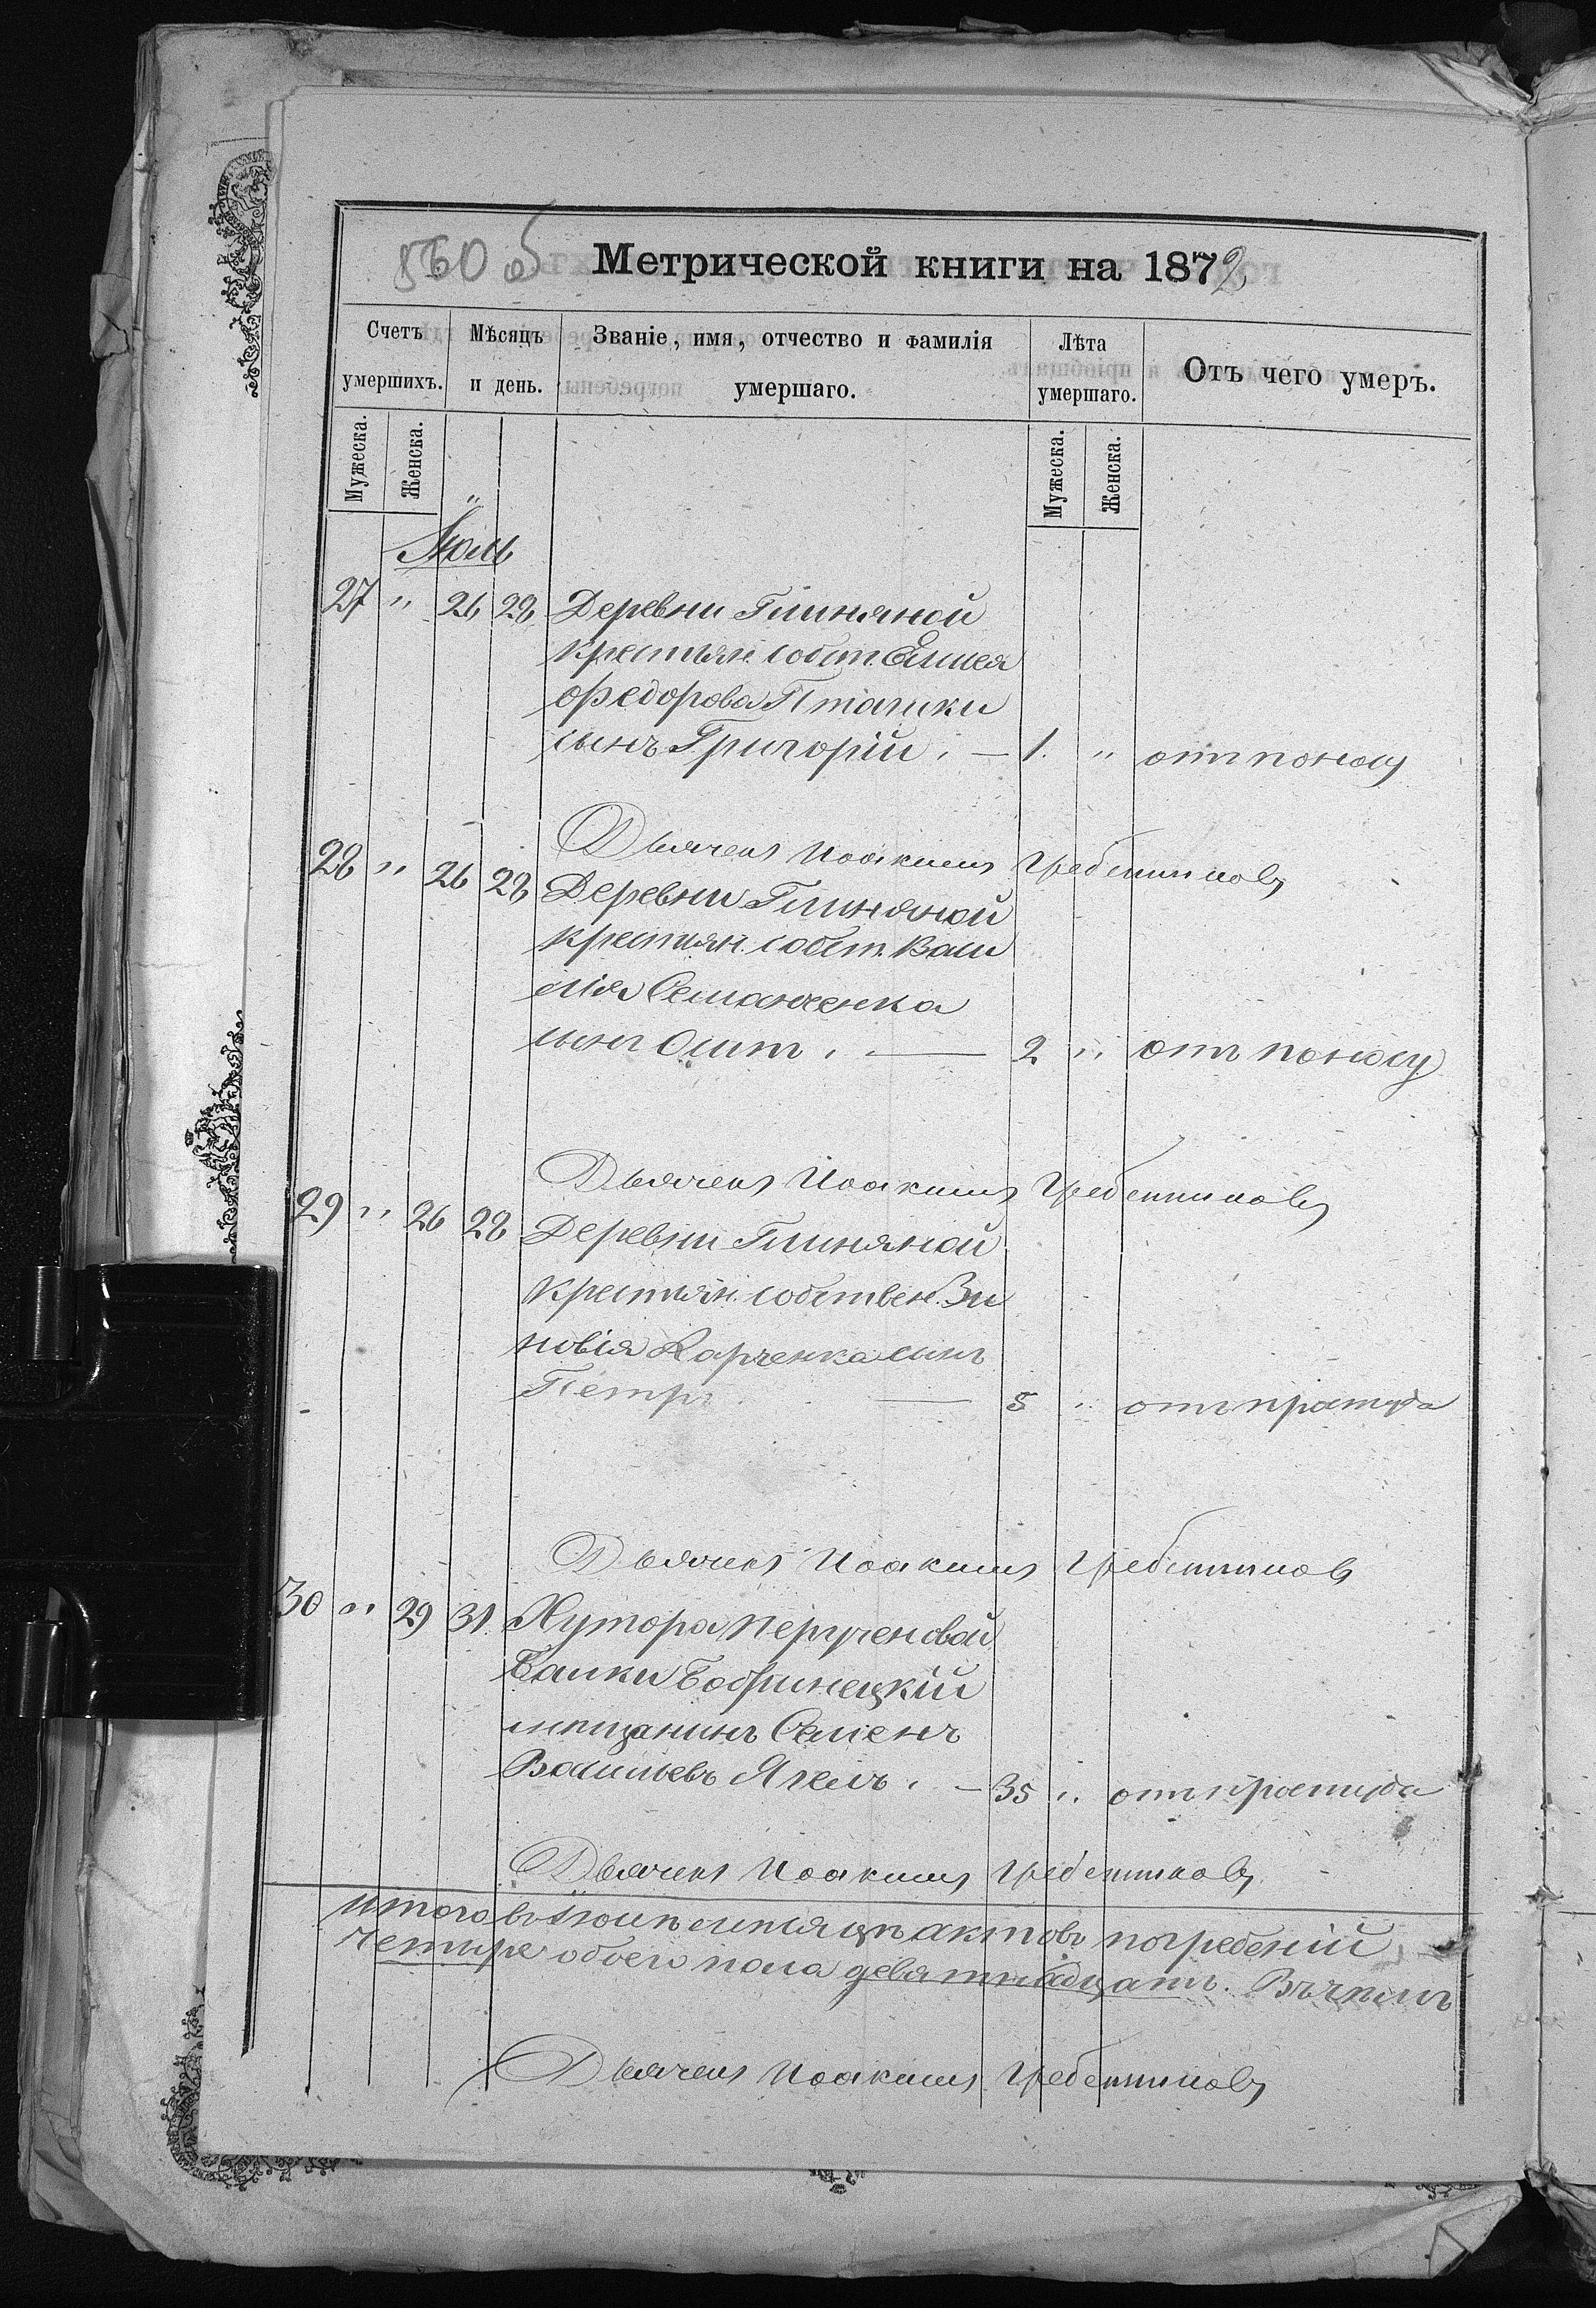 560 об
Метрической книги на 1872
Счетъ умершихъ.
Мѣсяцъ и день.
Званіе, имя, отчество и фамилія умершаго.
Лѣта умершаго.
Отъ чего умеръ.
Мужеска.
Женска.
Мужеска.
Женска.
Іюль
27 " 26 28 Деревни Глиняной
крестьян. собст. Елисея
Федорова Пташки
сынъ Григорій. — 1. " отъ поносу
Дьячекъ Иоакимъ Гребенниковъ
28 " 26 28 Деревни Глиняной
крестьян. собст. Васи
лія Семанченка
сынъ Осипъ. — 2 " отъ поносу
Дьячекъ Иоакимъ Гребенниковъ
29 " 26 28 Деревни Глиняной
крестьян. собствен. Зи
новія Харченка сынъ
Петръ. — 5 " отъ простуда
Дьячекъ Иоакимъ Гребенниковъ
30 " 29 31 Хутора
Балки Бобринецкій
мѣщанинъ Семенъ
Васильевъ — 35 " отъ простуда
Дьячекъ Иоакимъ Гребенниковъ
Итого въ Іюлѣ мѣсяцѣ актовъ погребеній
четыре обоего пола девятнадцать.
Дьячекъ Иоакимъ Гребенниковъ